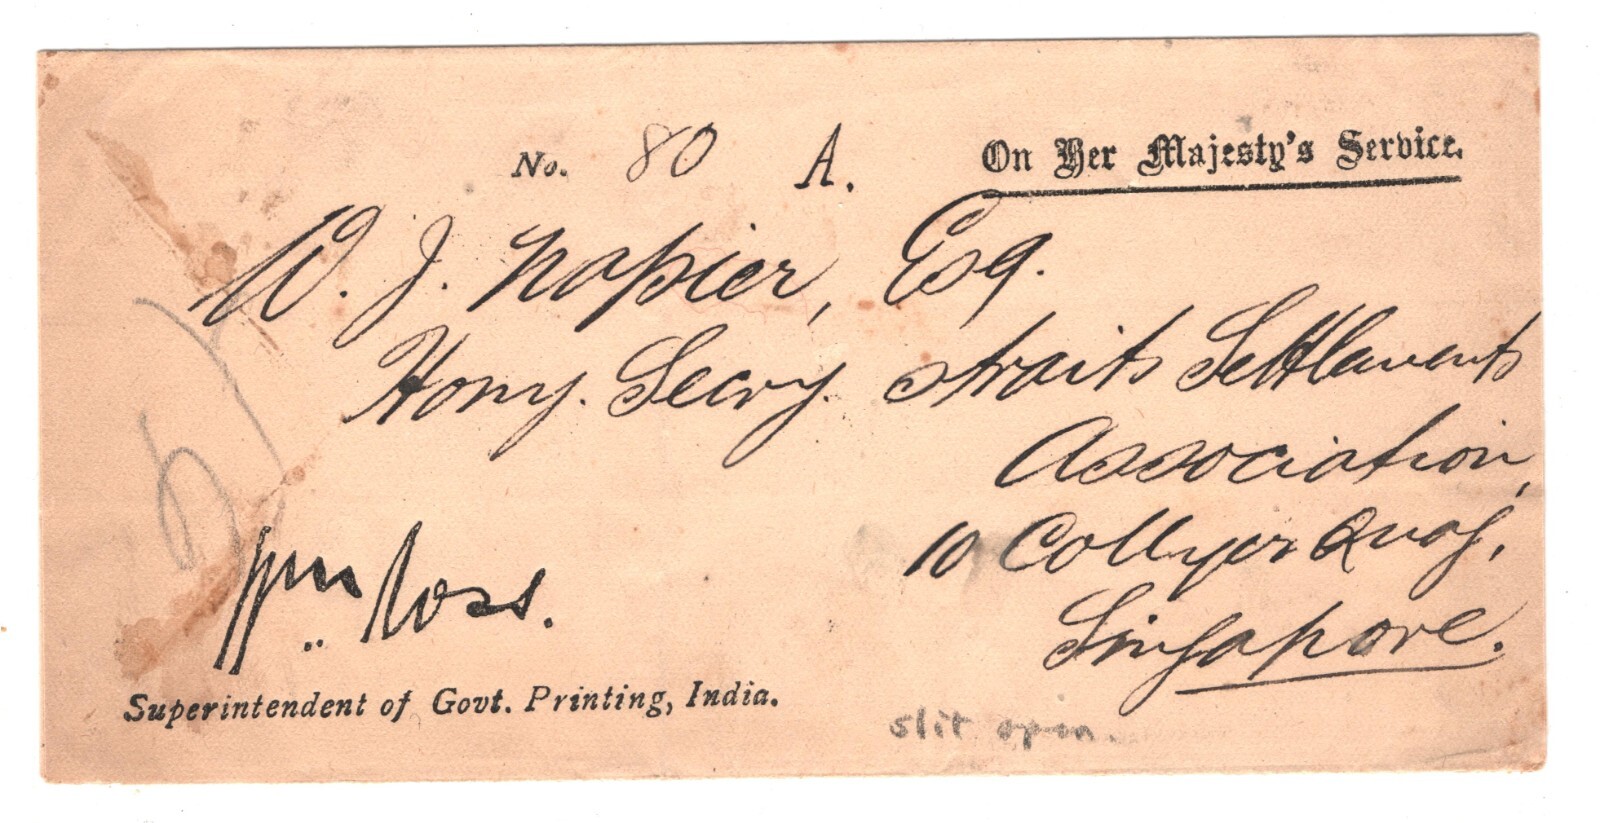 On Her Majesty's Service.
No. 80 A.
W. J. Napier, Esq.
Hony. Secry. Straits Settlements
Association,
10 Collyer Quay,
Singapore.
Wm Ross.
Superintendent of Govt. Printing, India.
slit open.